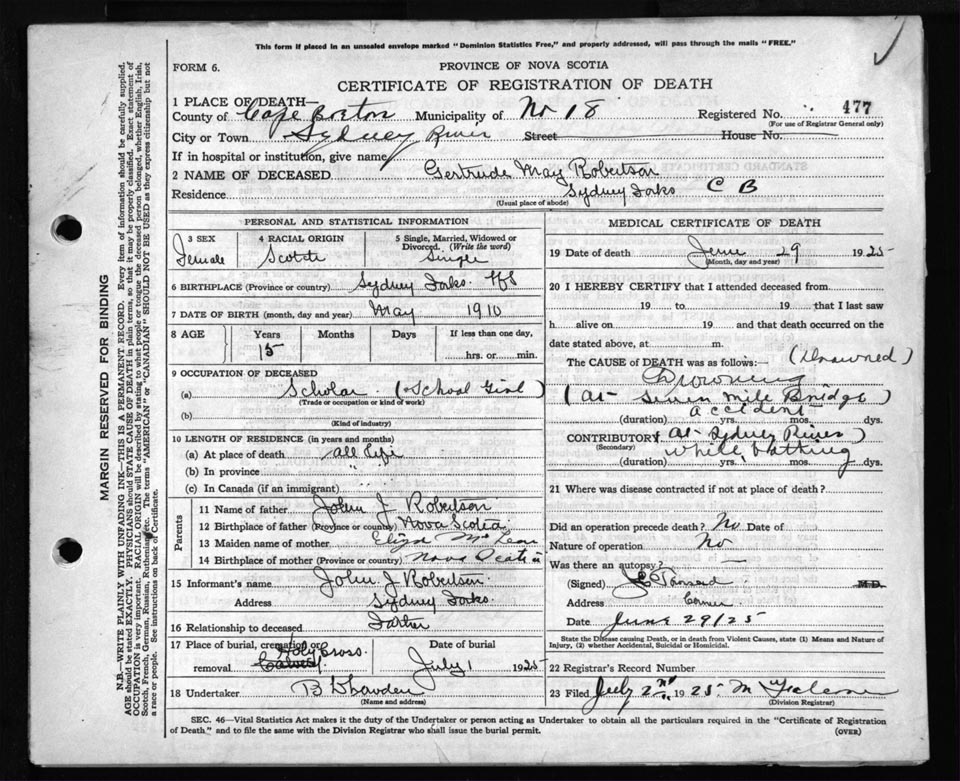 This form if placed in an unsealed envelope marked "Dominion Statistics Free," and properly addressed, will pass through the mails "FREE."
FORM 6.
PROVINCE OF NOVA SCOTIA
CERTIFICATE OF REGISTRATION OF DEATH
1 PLACE OF DEATH—
County of Cape Breton Municipality of No 18 Registered No. 477
(For use of Registrar General only)
City or Town Sydney River Street House No.
If in hospital or institution, give name
2 NAME OF DECEASED Gertrude May Robertson
Residence Sydney Forks C B
(Usual place of abode)
PERSONAL AND STATISTICAL INFORMATION
3 SEX Female
4 RACIAL ORIGIN Scotch
5 Single, Married, Widowed or Divorced. (Write the word) Single
6 BIRTHPLACE (Province or country) Sydney Forks
7 DATE OF BIRTH (month, day and year) May 1910
8 AGE Years Months Days If less than one day,
15 hrs. or min.
9 OCCUPATION OF DECEASED
(a) Scholar (School Girl)
(Trade or occupation or kind of work)
(b)
(Kind of industry)
10 LENGTH OF RESIDENCE (in years and months)
(a) At place of death all life
(b) In province "
(c) In Canada (if an immigrant)
Parents
11 Name of father John J Robertson
12 Birthplace of father (Province or country) Nova Scotia
13 Maiden name of mother Eliza McLean
14 Birthplace of mother (Province or country) Nova Scotia
15 Informant's name John J Robertson
Address Sydney Forks
16 Relationship to deceased Father
17 Place of burial, cremation or removal Holy Cross
Date of burial July 1 1925
18 Undertaker
(Name and address)
MEDICAL CERTIFICATE OF DEATH
19 Date of death June 29 1925
(Month, day and year)
20 I HEREBY CERTIFY that I attended deceased from
19 to 19 that I last saw
h alive on 19 and that death occurred on the
date stated above, at m.
The CAUSE of DEATH was as follows:— (Drowned)
Drowning
(at Seven Mile Bridge)
accident
(duration) yrs. mos. dys.
CONTRIBUTORY (at Sydney River)
(Secondary) while bathing
(duration) yrs. dys.
21 Where was disease contracted if not at place of death?
Did an operation precede death? No Date of
Nature of operation No
Was there an autopsy? —
(Signed) M.D.
Address
Date June 29/25
State the Disease causing Death, or in death from Violent Causes, state (1) Means and Nature of
Injury, (2) whether Accidental, Suicidal or Homicidal.
22 Registrar's Record Number
23 Filed July 2nd 1925
(Division Registrar)
SEC. 46—Vital Statistics Act makes it the duty of the Undertaker or person acting as Undertaker to obtain all the particulars required in the "Certificate of Registration
of Death," and to file the same with the Division Registrar who shall issue the burial permit.
(OVER)
MARGIN RESERVED FOR BINDING
N.B.—WRITE PLAINLY WITH UNFADING INK—THIS IS A PERMANENT RECORD. Every item of information should be carefully supplied.
AGE should be stated EXACTLY. PHYSICIANS should STATE CAUSE OF DEATH in plain terms, so that it may be properly classified. Exact statement of
OCCUPATION is very important. RACIAL ORIGIN will be described by stating to what people or tongue the deceased person belonged, whether English, Irish,
Scotch, French, German, Russian, Ruthenian, etc. The terms "AMERICAN" or "CANADIAN" SHOULD NOT BE USED as they express citizenship but not
a race or people. See instructions on back of Certificate.